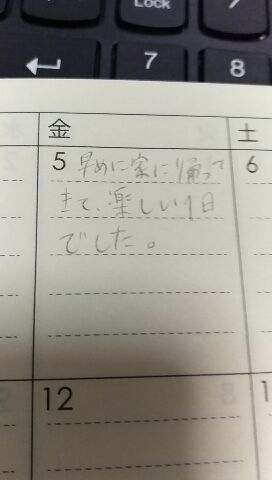 Lock
7
8
金
土
5 早めに家に帰って
きて、楽しい1日
でした。
6
12
1